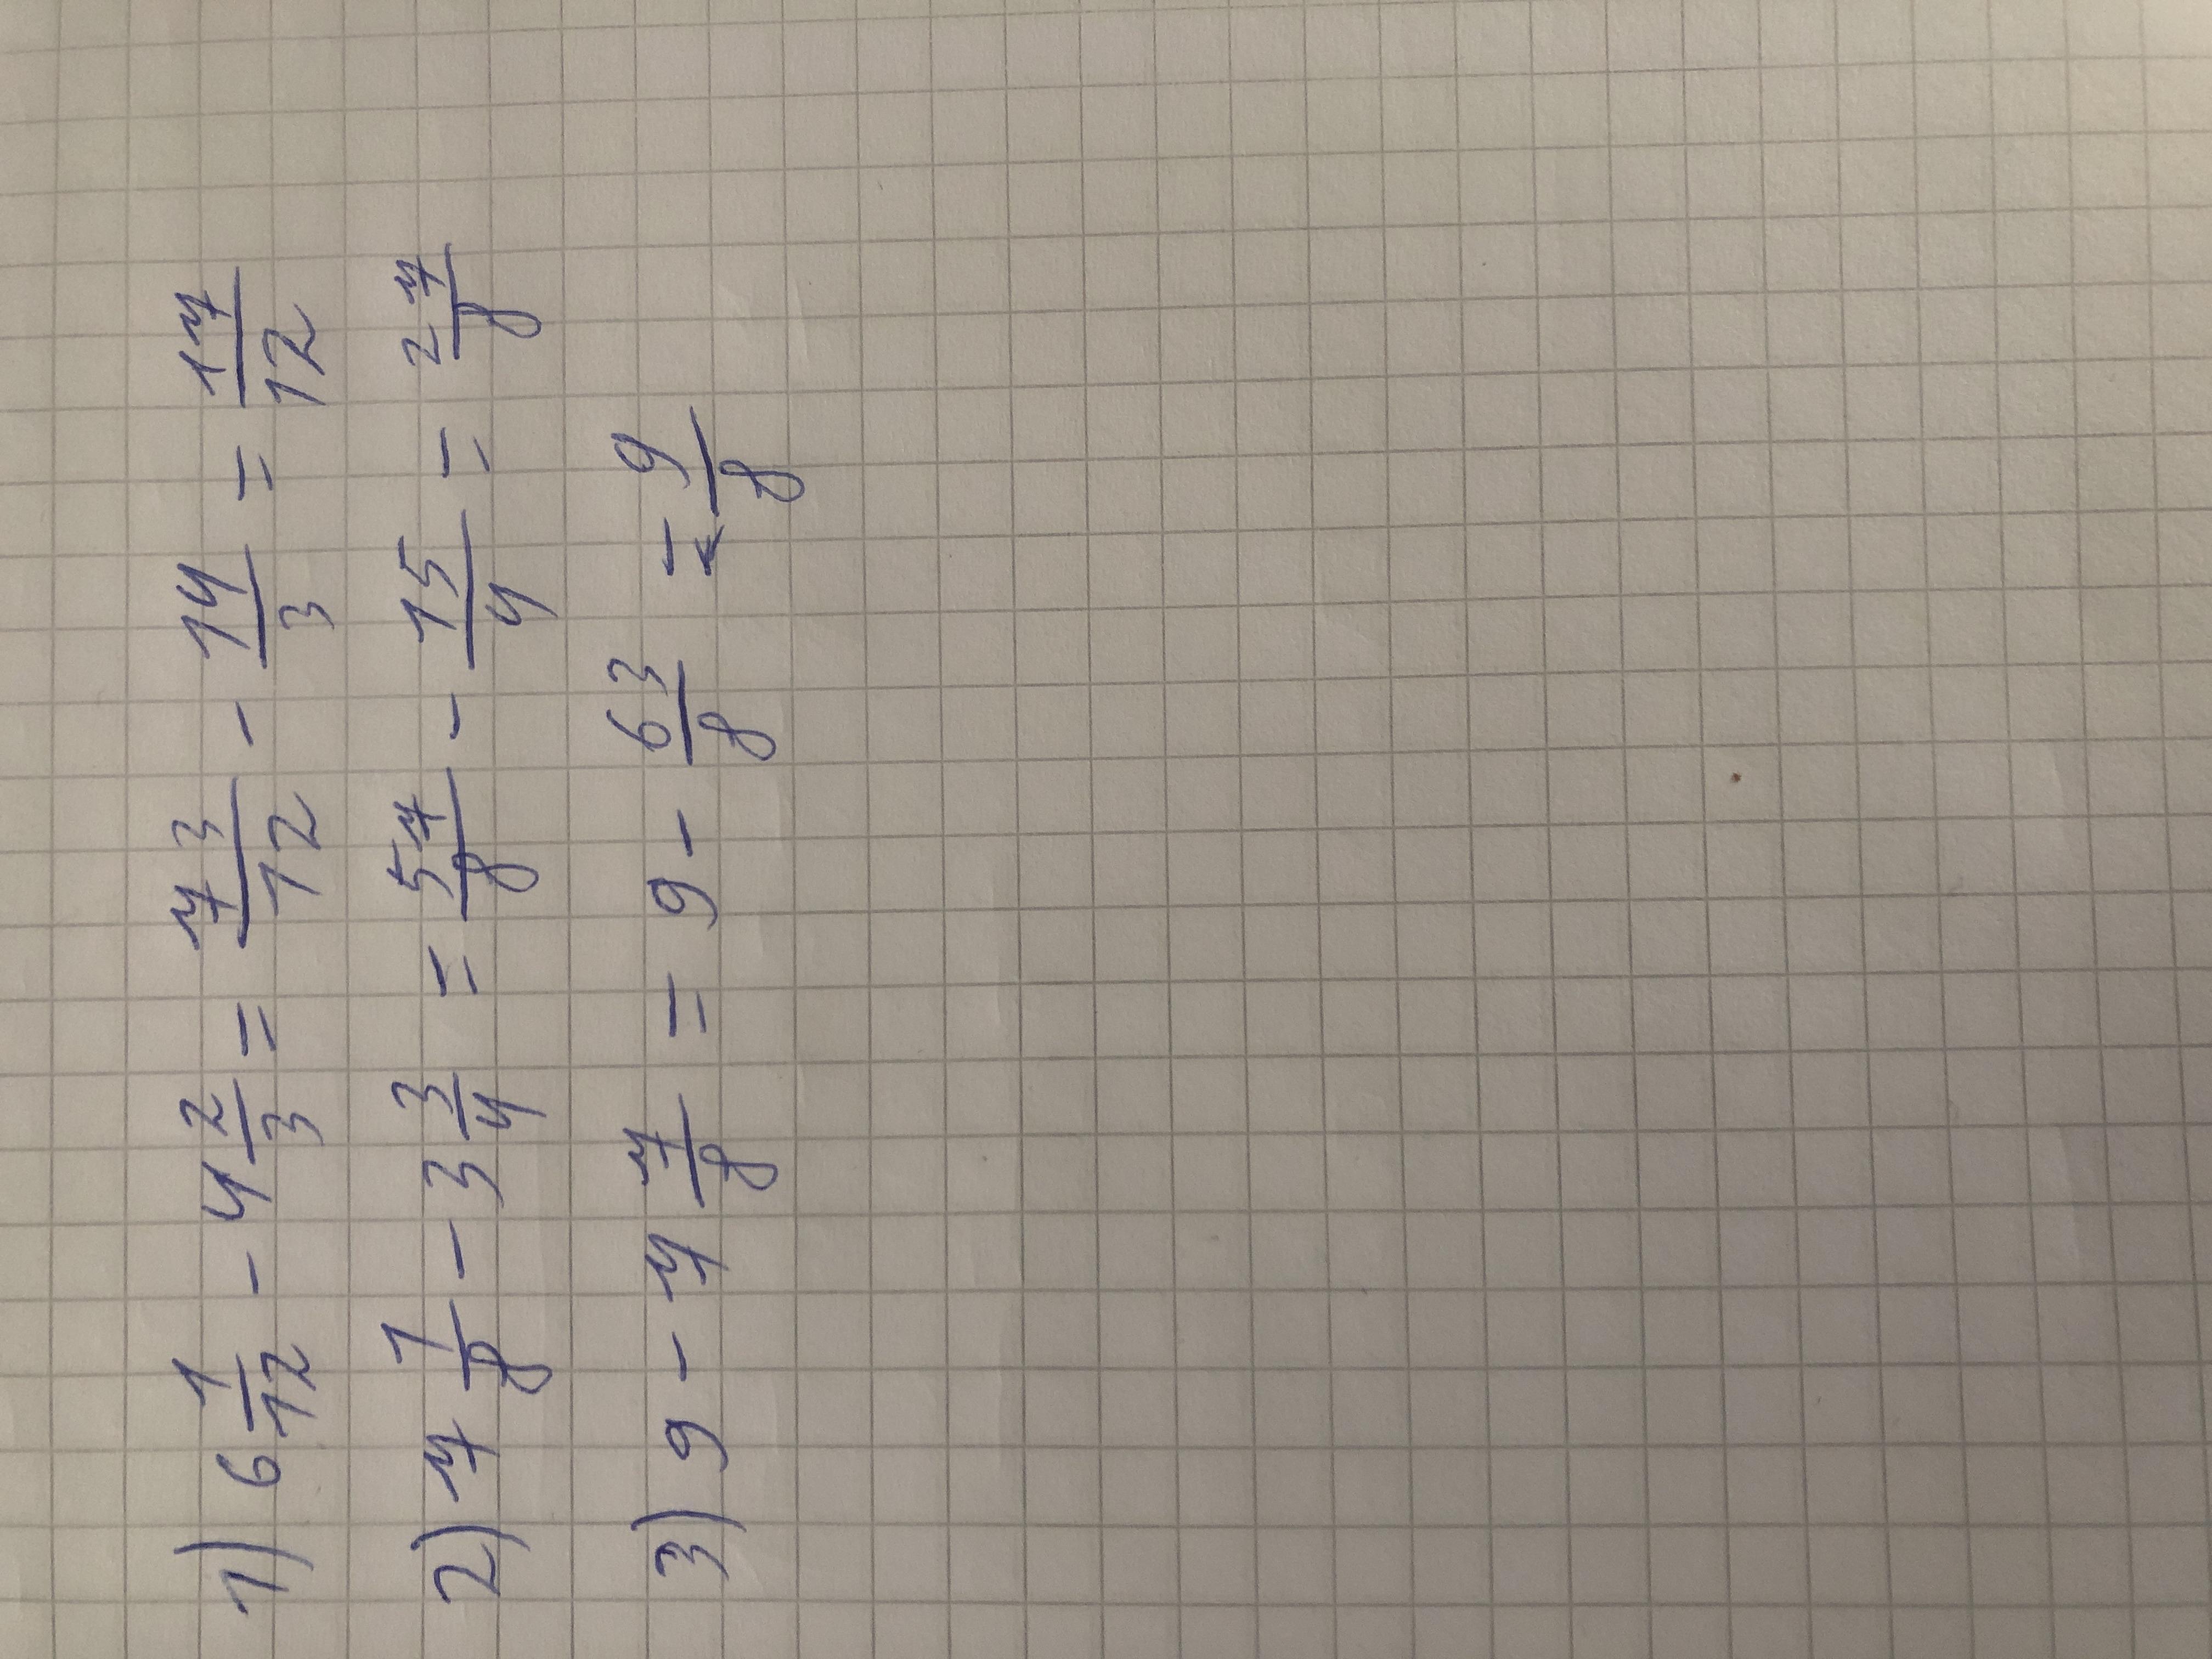 1) 6 1/12 - 4 2/3 = 73/12 - 14/3 = 17/12
2) 7 1/8 - 3 3/4 = 57/8 - 15/4 = 27/8
3) 9 - 7 7/8 = 9 - 63/8 = 9/8